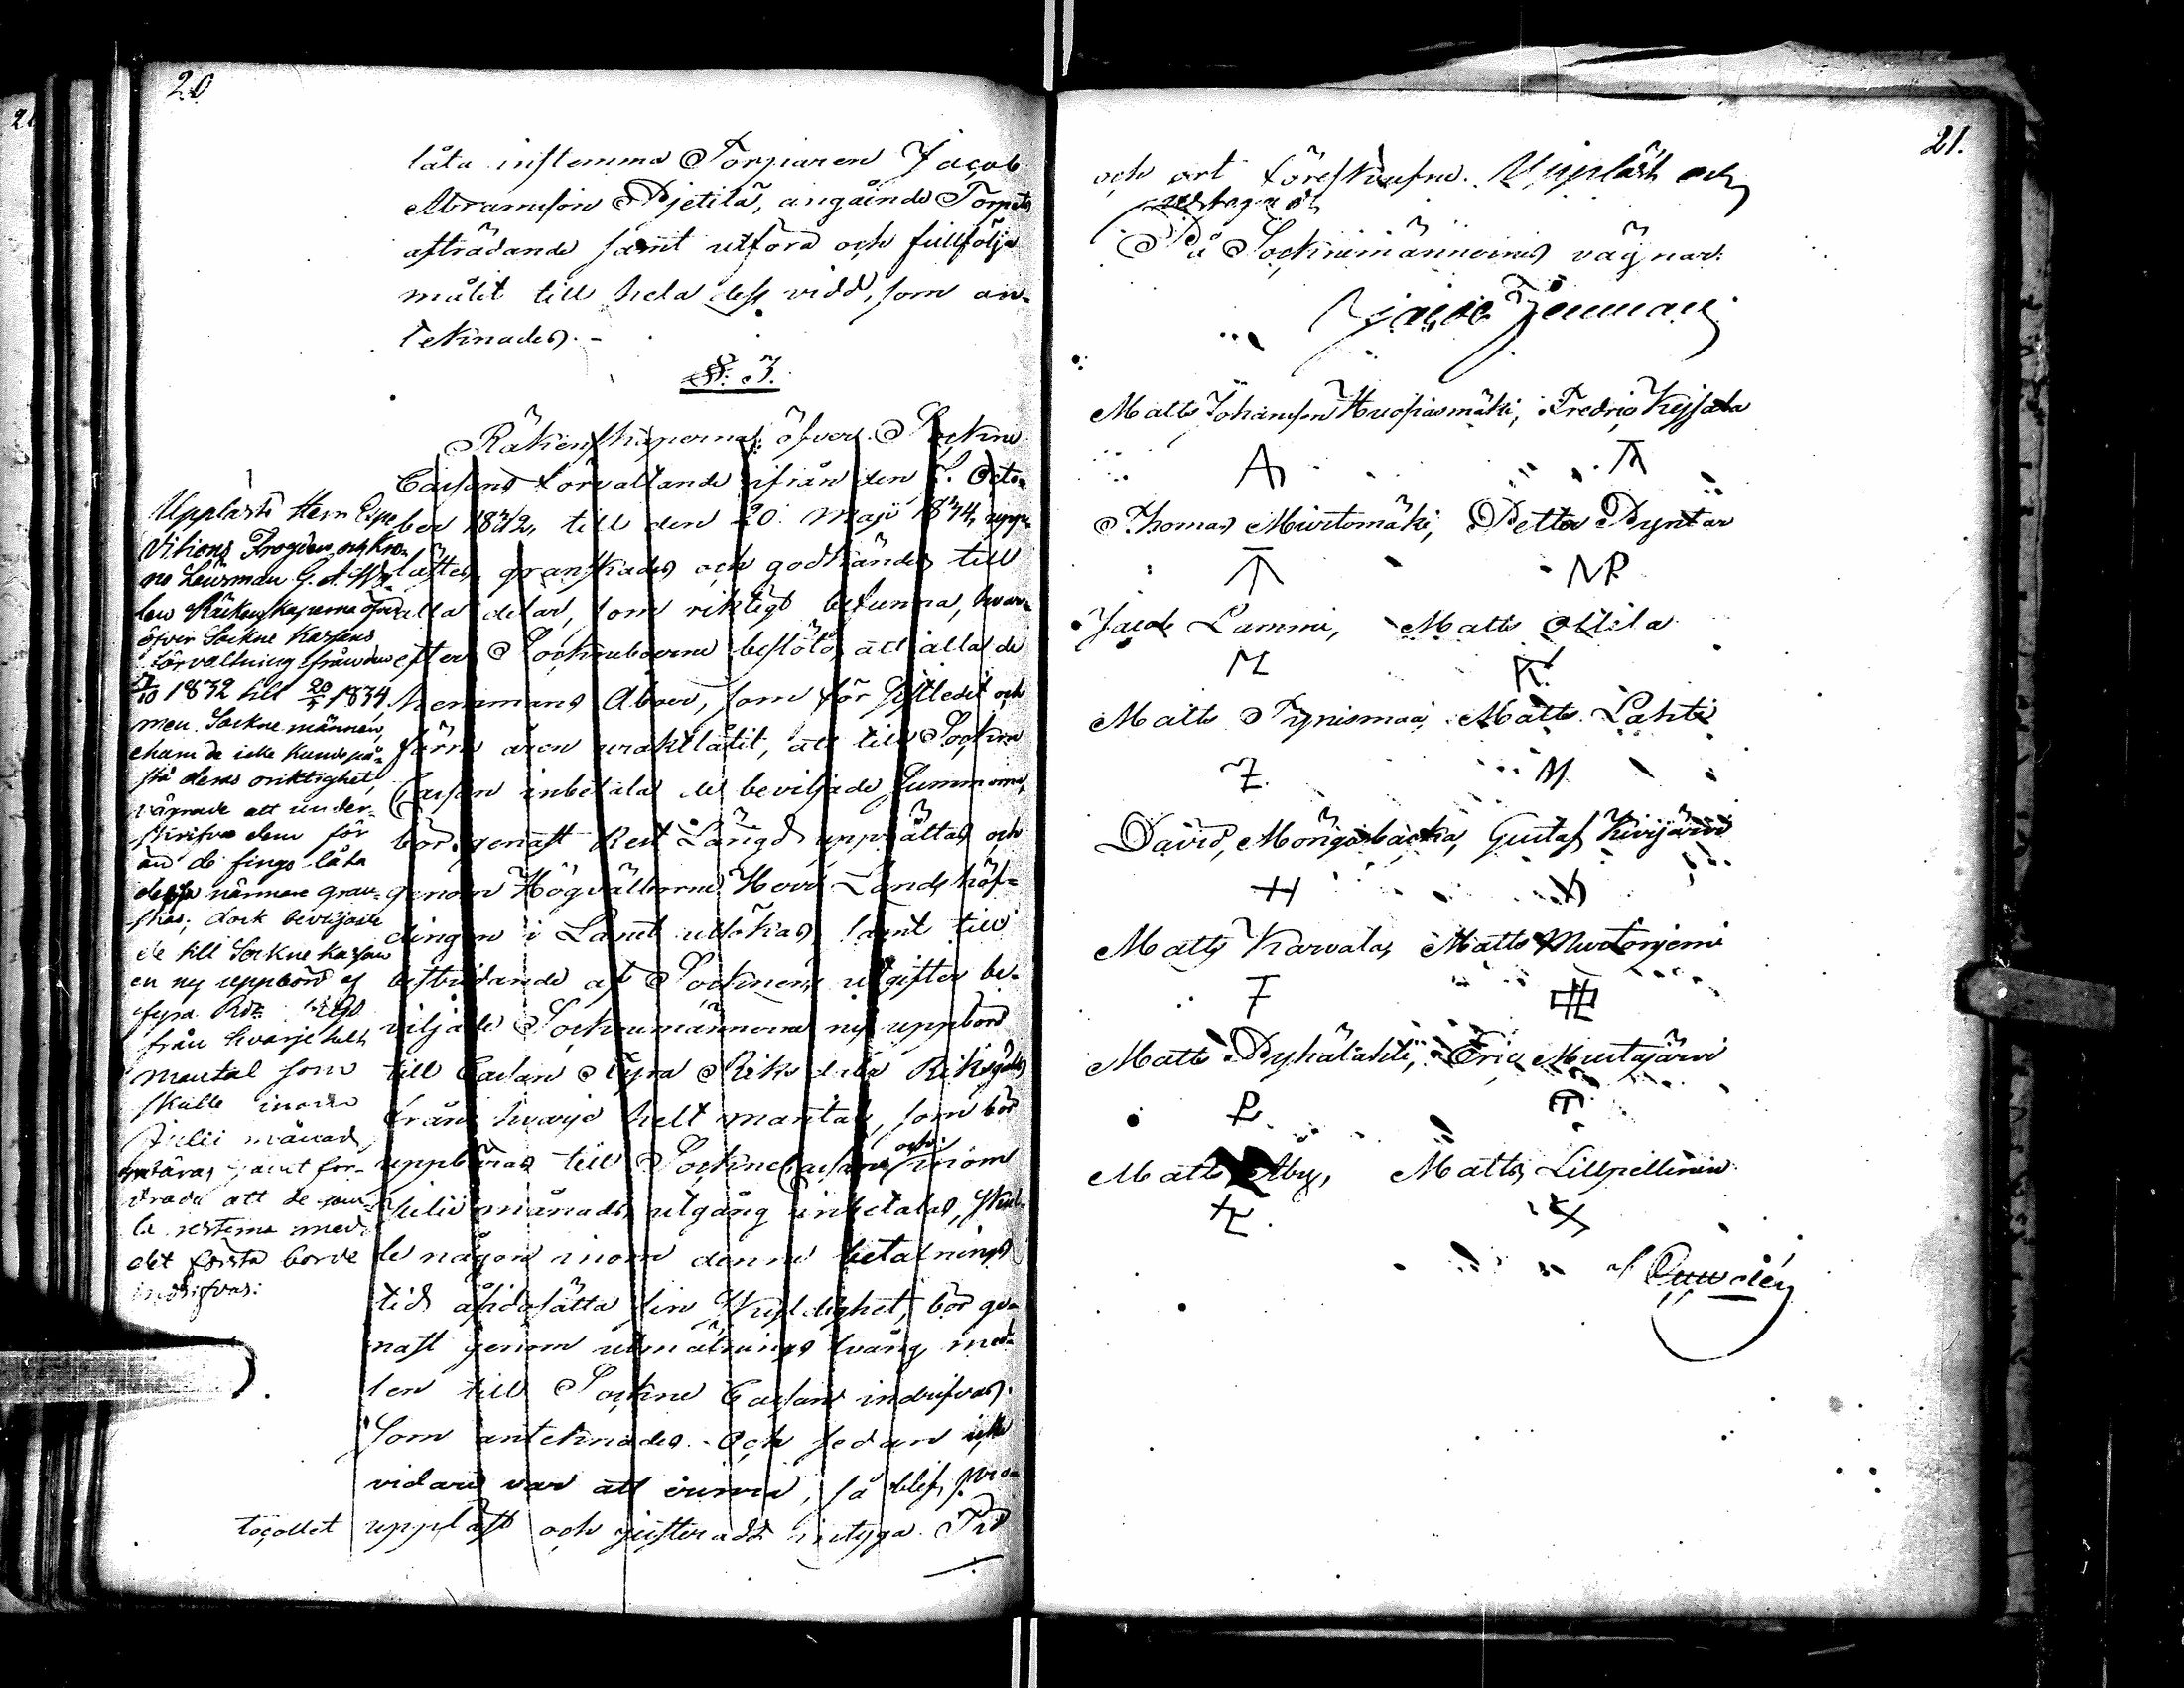 20
låta instemma Torparen Jacob
Abramsson Pjetilä, angående Torpets
afträdande samt utföra och fullfölja
målet till hela dess vidd, som an-
tecknades. -
§: 3.
Räkenskaperna öfver Sockne
Cassans förvaltande ifrån den 7. Octo-
ber 1832, till den 20. Maji 1834, upp-
lästes, granskades och godkändes till
alla delar, som riktigt befunna, hvar-
efter Socknuboerne beslöto, att alla de
hemmans Åboer, som för sistledit och
förra åren uraktlåtit, att till Sockne
Cassan inbetala de beviljade summorne,
bör genast Rest Längd upprättas och
genom Högvälborne Herr Landshöf-
dingen i Länet utsökas, samt till
bestridande af Socknens utgifter be-
viljade Socknemännerne ny uppbörd
till Cassan Fyra Riksdaler Riksgälds
från hvarje helt mantal, som bör
uppbäras till Sockne Cassan och inom
Julii månads utgång inbetalas, skul-
le någon inom denne betalnings
tid åsidosätta sin skyldighet, bör ge-
nast genom utmätnings tvång med-
len till Sockne Cassan indrifvas.
Som antecknades. Och sedan icke
vidare var att
, så blef, pro-
tocollet uppläst och justeradt intyga Tid
Upplästes Herr Expe
ditions Frogden och Kro-
no Länsman G. A.
Räkenskaperna öfver
öfver Sockne Kassans
förvaltning från den
7/10 1832 till 20/5 1834
men Sockne männen,
ehuru de icke kunde på-
stå deras oriktighet,
vägrade att under-
skrifva dem för
än de fingo låta
dessa närmare gran-
skas; dock beviljade
de till Sockne kassan
en ny uppbörd af
fyra Rdr RGs
från hvarje helt
mantal som
skulle inom
Julii månad
samt for-
drade att de gam-
la resterna med
det första borde
indrifvas:
21.
och ort föreskrefne. Uppläst och
vedtaget
På Socknemännernes vägnar:
Jacob
Matts Johansson Huopiasmäki, Fredric Kessala
Thomas Murtomäki, Petter Pyntar
NP
Jacob Lammi, Matts Ollila
Matts Tynismaa, Matts Lahti
David, Mörgesbacka, Gustaf Kivijärvi
Matts Karvala, Matts Murtoniemi
Matts Pyhälahti, Eric Mustajärvi
Matts Åby, Matts Lillpellinin